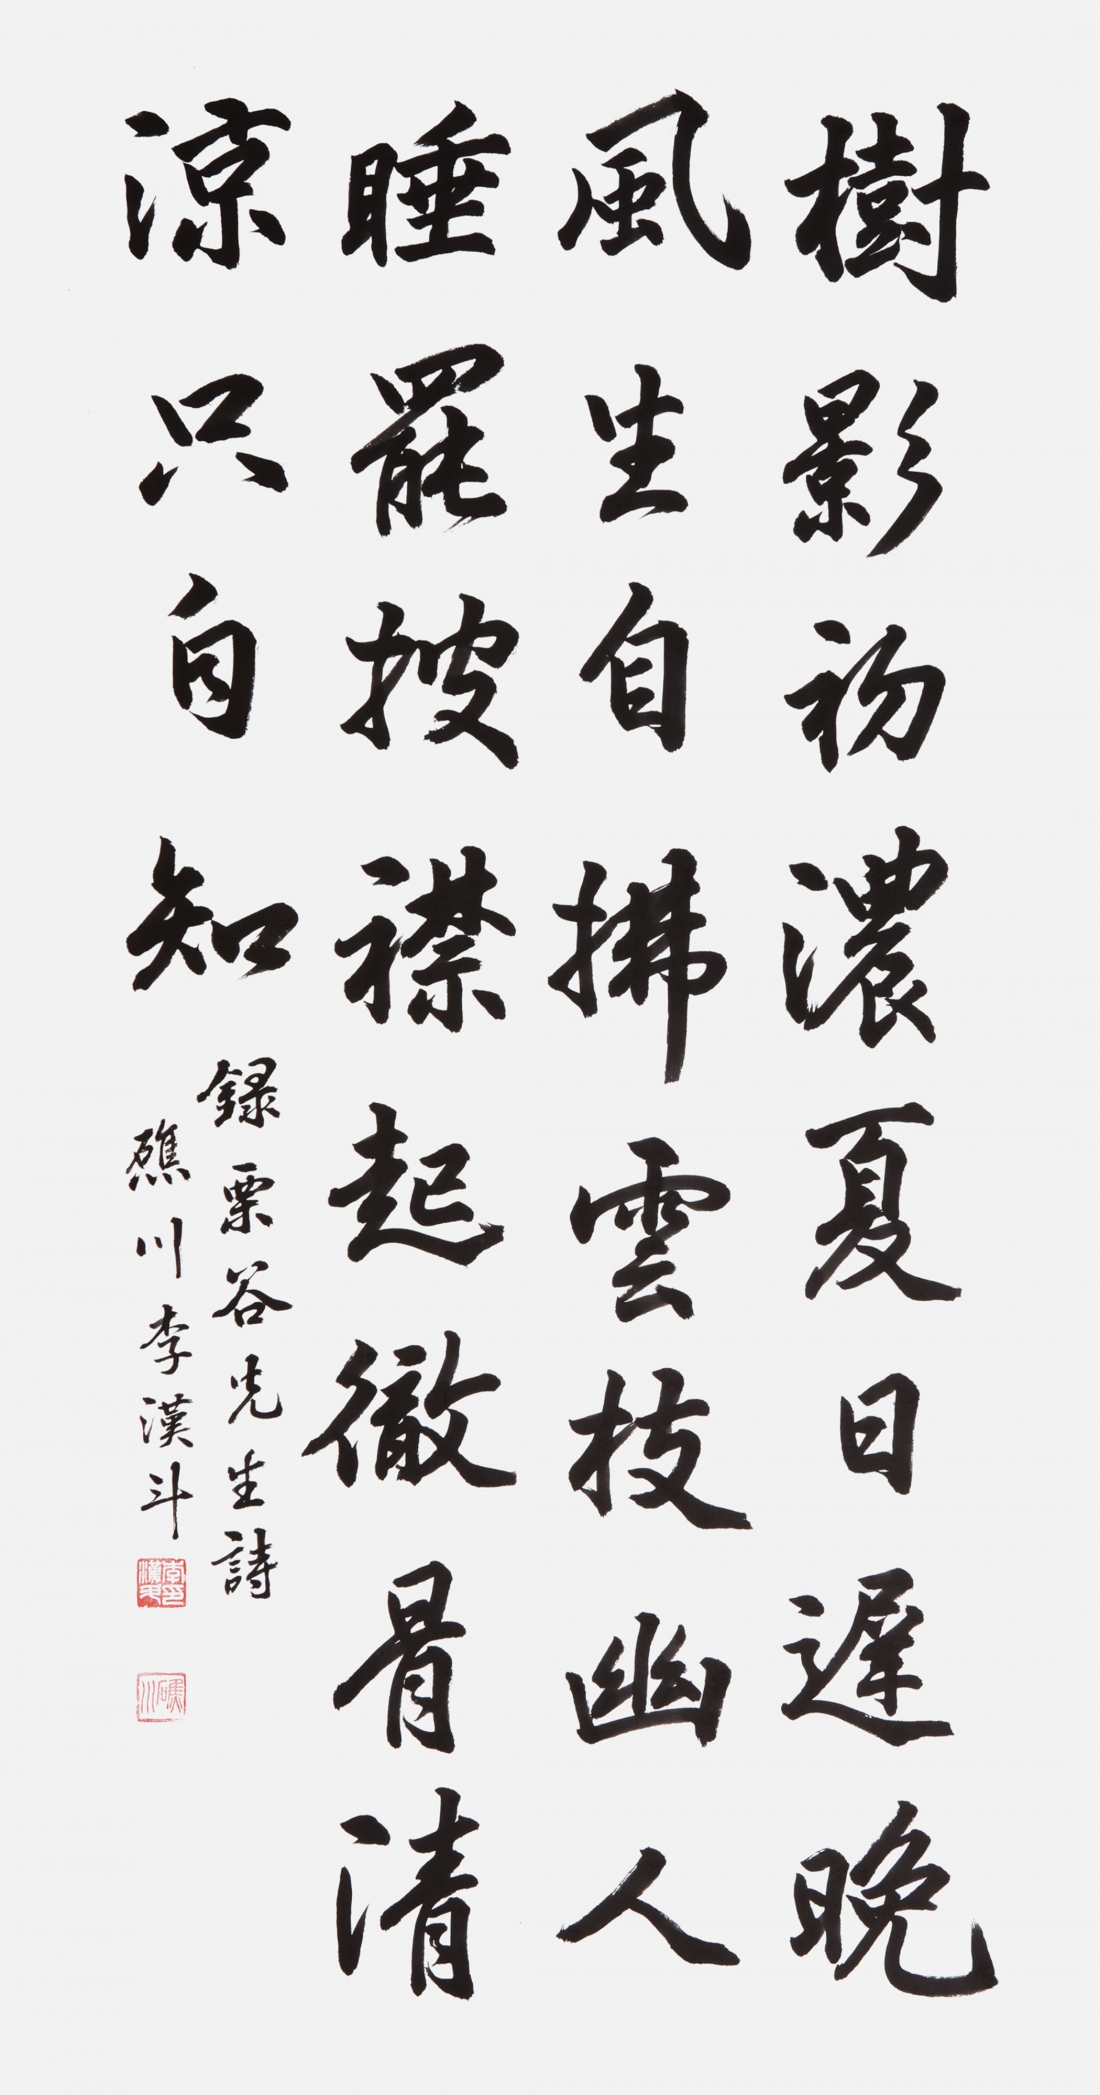 樹影初濃夏日遲晚
風生自拂雲枝幽人
睡罷披襟起徹骨清
涼只自知
錄栗谷先生詩
礁川李漢斗
李漢斗印
礁川